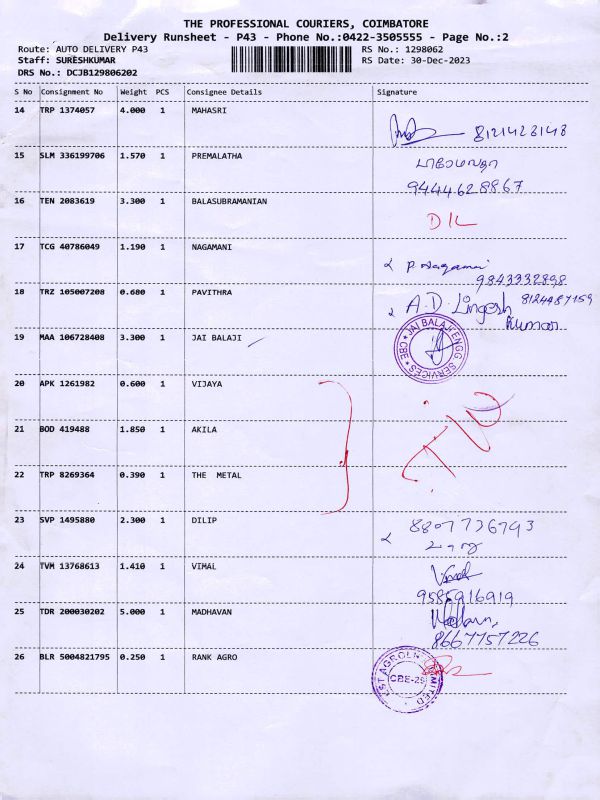 THE PROFESSIONAL COURIERS, COIMBATORE
Delivery Runsheet - P43 - Phone No.:0422-3505555 - Page No.:2
Route: AUTO DELIVERY P43 RS No.: 1298062
Staff: SURESHKUMAR RS Date: 30-Dec-2023
DRS No.: DCJB129806202
S No Consignment No Weight PCS Consignee Details Signature
14 TRP 1374057 4.000 1 MAHASRI
8121423148
15 SLM 336199706 1.570 1 PREMALATHA பிரேமலதா
9444628867
16 TEN 2083619 3.300 1 BALASUBRAMANIAN D/L
17 TCG 40786049 1.190 1 NAGAMANI P. Nagamani
9843332898
18 TRZ 105007208 0.680 1 PAVITHRA A.D. Lingesh 8124987159
Kumar
19 MAA 106728408 3.300 1 JAI BALAJI JAI BALAJI ENGG SERVICES * CBE *
20 APK 1261982 0.600 1 VIJAYA
21 BOD 419488 1.850 1 AKILA
22 TRP 8269364 0.390 1 THE METAL
23 SVP 1495880 2.300 1 DILIP 8807736793
24 TVM 13768613 1.410 1 VIMAL Vimal
9585916919
25 TDR 200030202 5.000 1 MADHAVAN Madhavan
8667757226
26 BLR 5004821795 0.250 1 RANK AGRO CBE-28